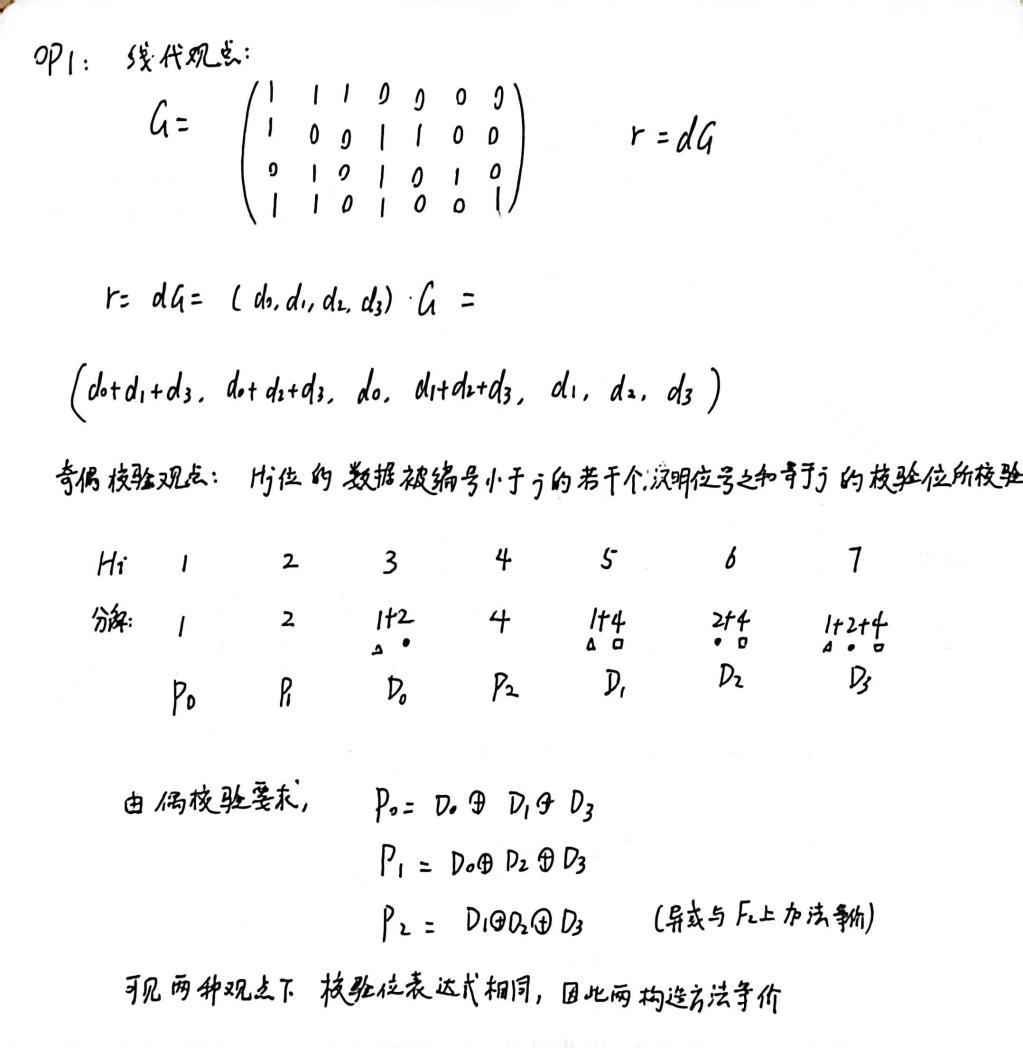 OP1: 线代观点:
G= ( 1 1 1 0 0 0 0
1 0 0 1 1 0 0
0 1 0 1 0 1 0
1 1 0 1 0 0 1 ) r = dG
r= dG= (d₀,d₁,d₂,d₃)·G =
(d₀+d₁+d₃, d₀+d₂+d₃, d₀, d₁+d₂+d₃, d₁, d₂, d₃)
奇偶校验观点: Hj位的数据被编号小于j的若干个汉明位号之和等于j的校验位所校验
Hi 1 2 3 4 5 6 7
分解: 1 2 1+2 4 1+4 2+4 1+2+4
△ • △ □ • □ △ • □
P₀ P₁ D₀ P₂ D₁ D₂ D₃
由偶校验要求, P₀= D₀⊕D₁⊕D₃
P₁ = D₀⊕D₂⊕D₃
P₂ = D₁⊕D₂⊕D₃ (异或与F₂上加法等价)
可见两种观点下校验位表达式相同,因此两构造方法等价